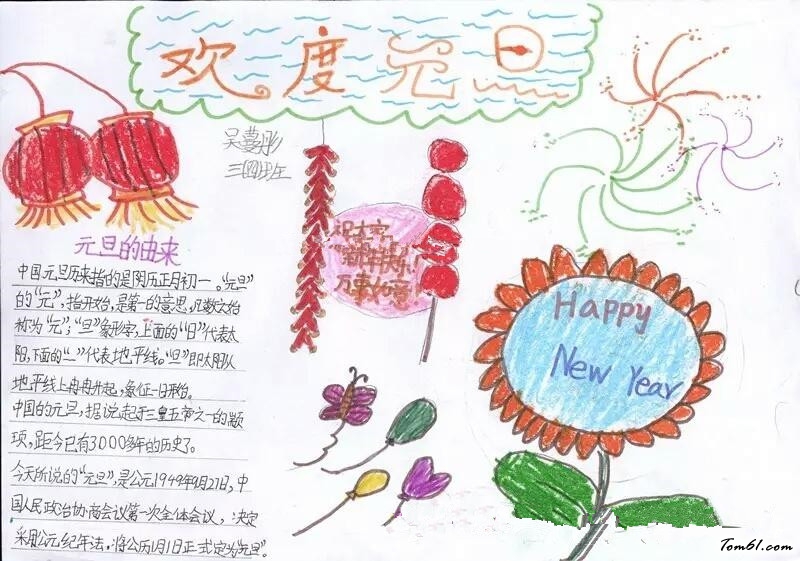 欢度元旦
吴蔓彤
三(四)班
元旦的由来
中国元旦历来指的是阴历正月初一。“元旦”
的“元”，指开始，是第一的意思，凡数之始
称为“元”；“旦”象形字，上面的“日”代表太
阳，下面的“一”代表地平线。“旦”即太阳从
地平线上冉冉升起，象征一日开始。
中国的元旦，据说起于三皇五帝之一的颛
顼，距今已有3000多年的历史了。
今天所说的“元旦”，是公元1949年9月27日，中
国人民政治协商会议第一次全体会议，决定
采用公元纪年法，将公历1月1日正式定为“元旦”。
祝大家
新年快乐！
万事如意！
Happy
New Year
Tom61.com